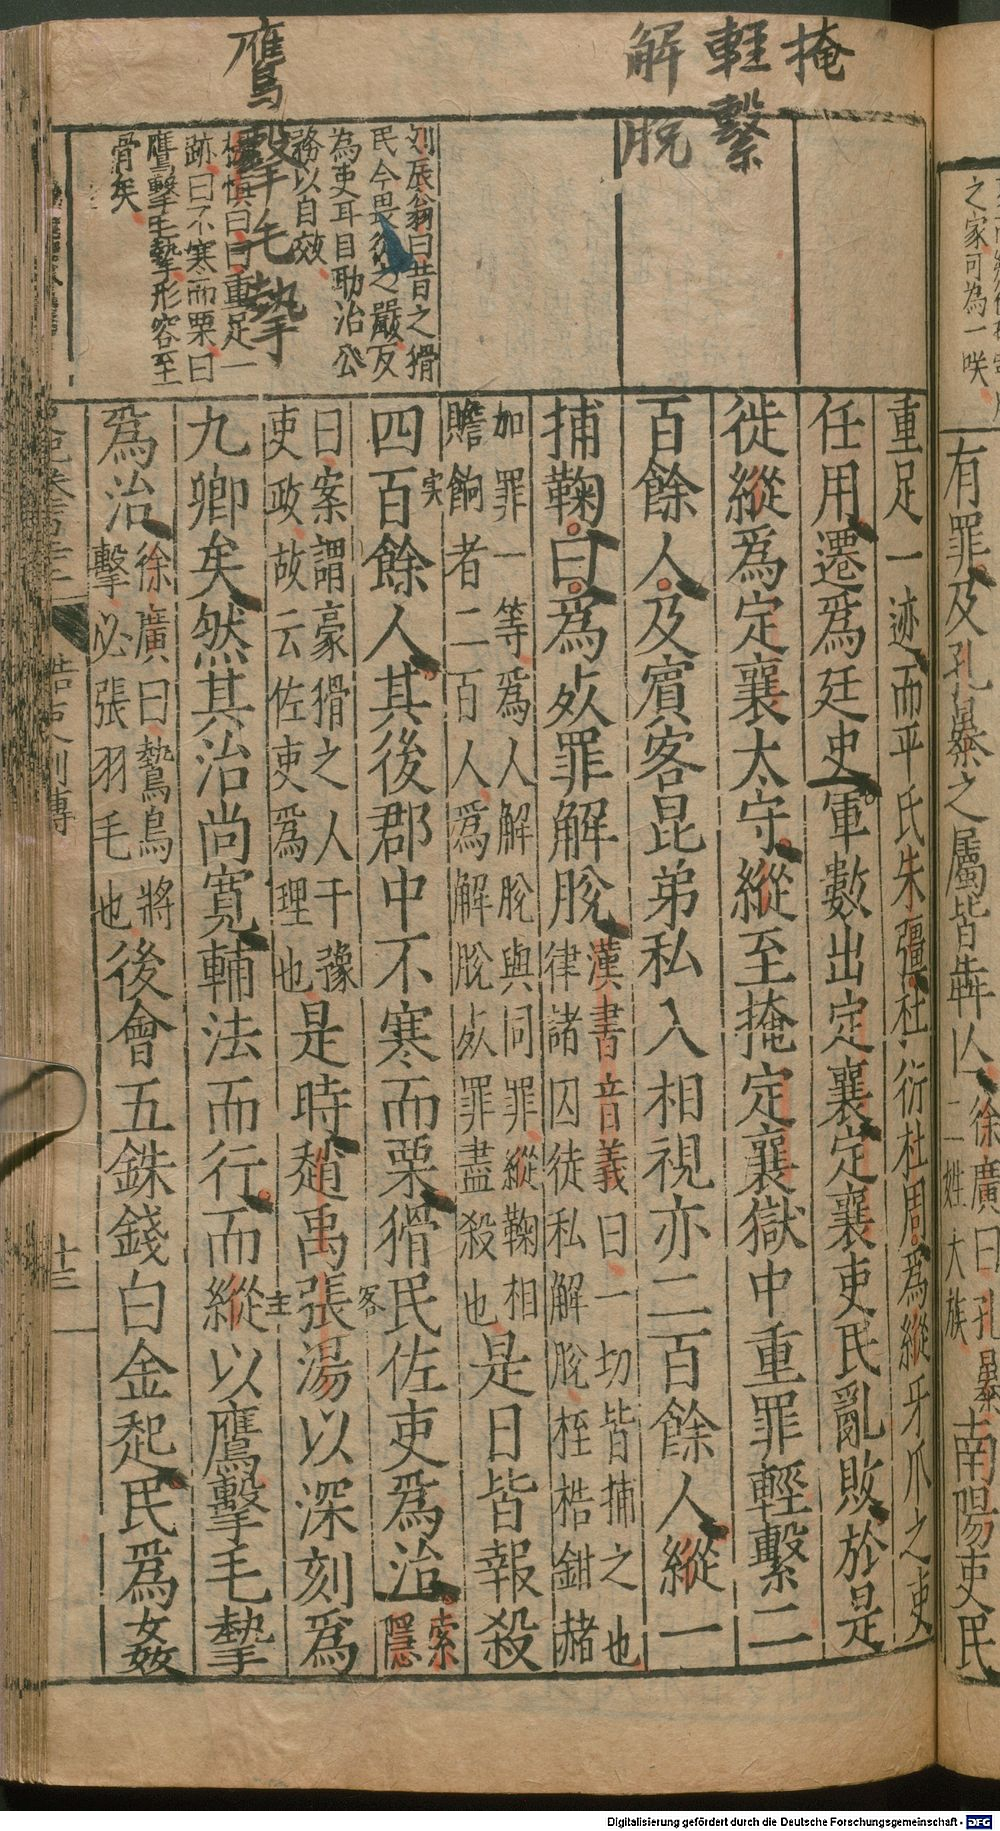 有罪及孔暴之屬皆犇亾徐廣曰孔暴二姓大族南陽吏民
之家可為一咲
掩
輊繫
解脫
鷹擊毛摯
重足一迹而平氏朱彊杜衍杜周爲縱牙爪之吏
任用遷爲廷史軍數出定襄定襄吏民亂敗於是
徙縱爲定襄太守縱至掩定襄獄中重罪輕繫二
百餘人及賓客昆弟私入相視亦二百餘人縱一
捕鞠曰爲死罪解脫
漢書音義曰一切皆捕之也
律諸囚徒私解脫桎梏鉗赭
加罪一等爲人解脫與同罪縱鞠相
贍餉者二百人爲解脫死罪盡殺也
是日皆報殺
四百餘人其後郡中不寒而栗猾民佐吏爲治
索隱
曰案謂豪猾之人干豫
吏政故云佐吏爲理也
是時趙禹張湯以深刻爲
九卿矣然其治尚寬輔法而行而縱以鷹擊毛摯
爲治
徐廣曰鷙鳥將
擊必張羽毛也
後會五銖錢白金起民爲姦
實
客
主
刘辰翁曰昔之猾
民今畏之嚴反
為吏耳目助治公
務以自效
楊慎曰曰重足一
跡曰不寒而栗曰
鷹擊毛摯形容至
骨矣
酷吏列傳
廿三
Digitalisierung gefördert durch die Deutsche Forschungsgemeinschaft - DFG